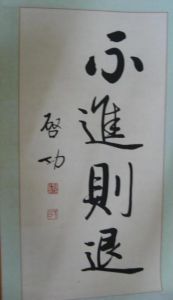 不進則退
啓功